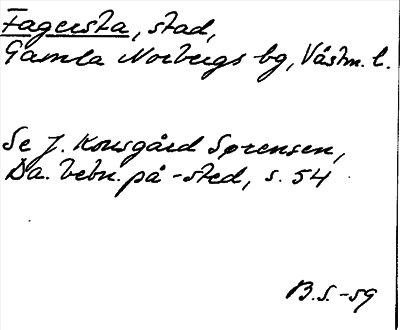 Fagersta, stad,
Gamla Norbergs bg, Västm. l.
Se J. Kousgård Sørensen,
Da. bebn. på -sted, s. 54
B.S.-59